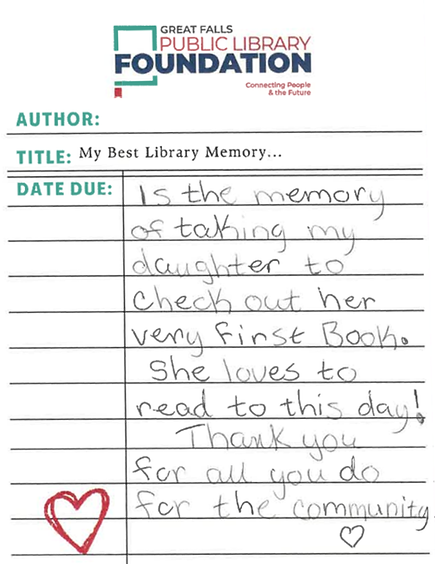 GREAT FALLS
PUBLIC LIBRARY
FOUNDATION
Connecting People
& the Future
AUTHOR:
TITLE: My Best Library Memory...
DATE DUE:
Is the memory
of taking my
daughter to
check out her
very first Book.
She loves to
read to this day!
Thank you
for all you do
for the community